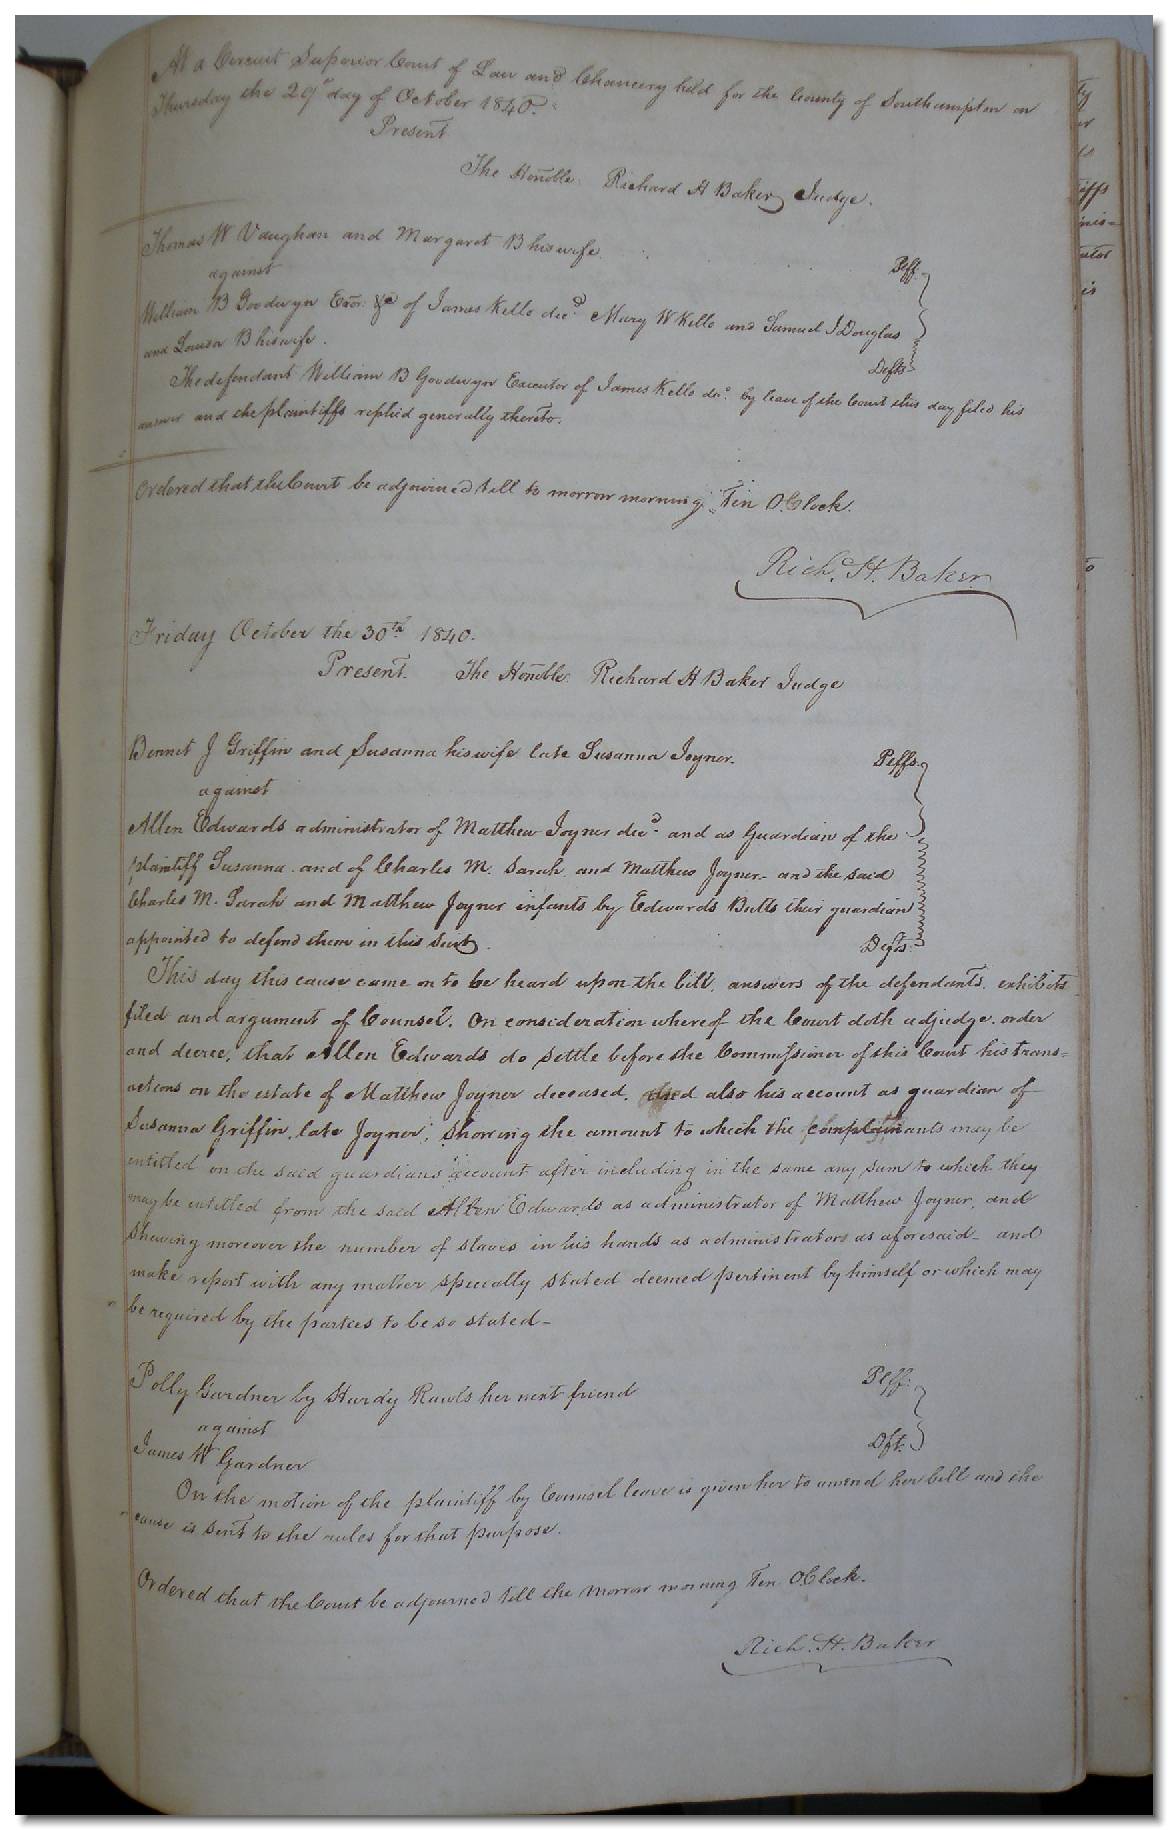 At a Circuit Superior Court of Law and Chancery held for the County of Southampton on
Thursday the 29th day of October 1840.
Present
The Honble. Richard H Baker Judge.
Thomas W Vaughan and Margaret B his wife
Plff.
against
William B Goodwyn Exor. &c of James Kello decd. Mary W Kello and Samuel J Douglas
and Louisa B his wife.
Defts.
The defendant William B Goodwyn Executor of James Kello dec. by leave of the Court this day filed his
answer and the plaintiffs replied generally thereto.
Ordered that the Court be adjourned till to morrow morning Ten O.Clock.
Rich. H. Baker
Friday October the 30th 1840.
Present. The Honble. Richard H Baker Judge
Bennet J Griffin and Susanna his wife late Susanna Joyner.
Plffs.
against
Allen Edwards administrator of Matthew Joyner decd. and as Guardian of the
plaintiff Susanna and of Charles M. Sarah and Matthew Joyner - and the said
Charles M. Sarah and Matthew Joyner infants by Edwards Butts their guardian
appointed to defend them in this suit.
Defts.
This day this cause came on to be heard upon the bill, answers of the defendants, exhibits
filed and argument of Counsel. On consideration whereof the Court doth adjudge, order
and decree, that Allen Edwards do settle before the Commissioner of this Court his trans=
actions on the estate of Matthew Joyner deceased, and also his account as guardian of
Susanna Griffin, late Joyner, showing the amount to which the complainants may be
entitled on the said guardians account after including in the same any sum to which they
may be entitled from the said Allen Edwards as administrator of Matthew Joyner, and
shewing moreover the number of slaves in his hands as administrator as aforesaid - and
make report with any matter specially stated deemed pertinent by himself or which may
be required by the parties to be so stated -
Polly Gardner by Hardy Rawls her next friend
Plff.
against
James W Gardner
Dft.
On the motion of the plaintiff by Counsel leave is given her to amend her bill and the
cause is sent to the rules for that purpose.
Ordered that the Court be adjourned till the morrow morning Ten O.Clock.
Rich. H. Baker